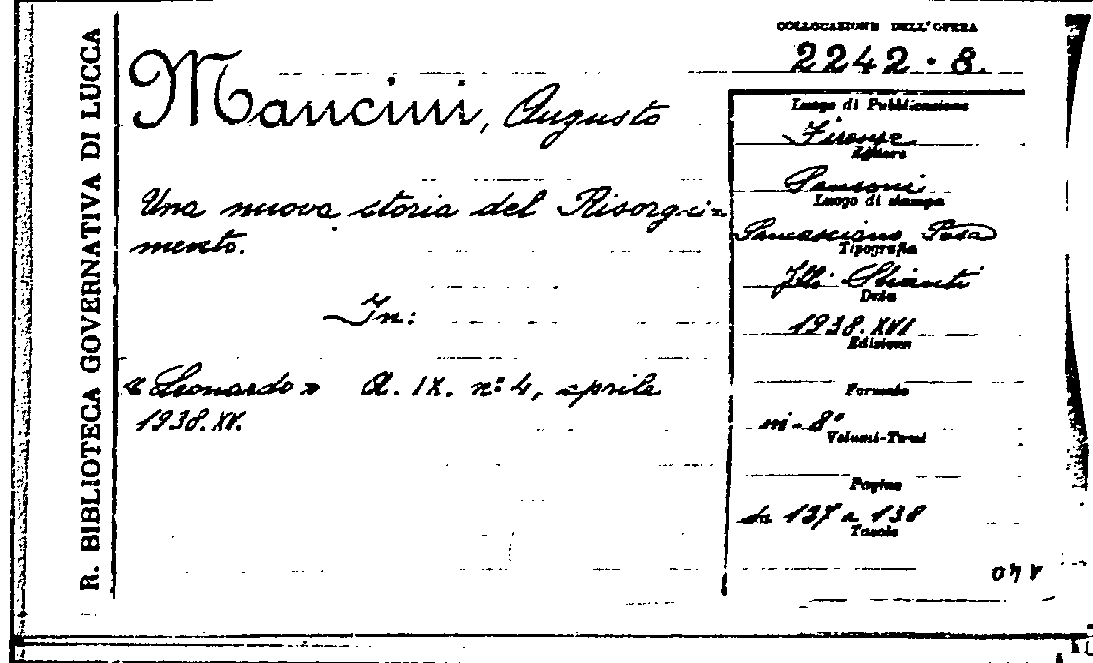 R. BIBLIOTECA GOVERNATIVA DI LUCCA
Mancini, Augusto
Una nuova storia del Risorgi=
mento.
In:
« Leonardo » A. IX. n.º 4, aprile
1938.XV.
COLLOCAZIONE DELL'OPERA
2242.8.
Luogo di Pubblicazione
Firenze
Editore
Sansoni
Luogo di stampa
Sancasciano Pesa
Tipografia
F.lli Stianti
Data
1938.XVI
Edizione
Formato
in-8º
Volumi-Tomi
Pagine
da 137 a 138
Tavole